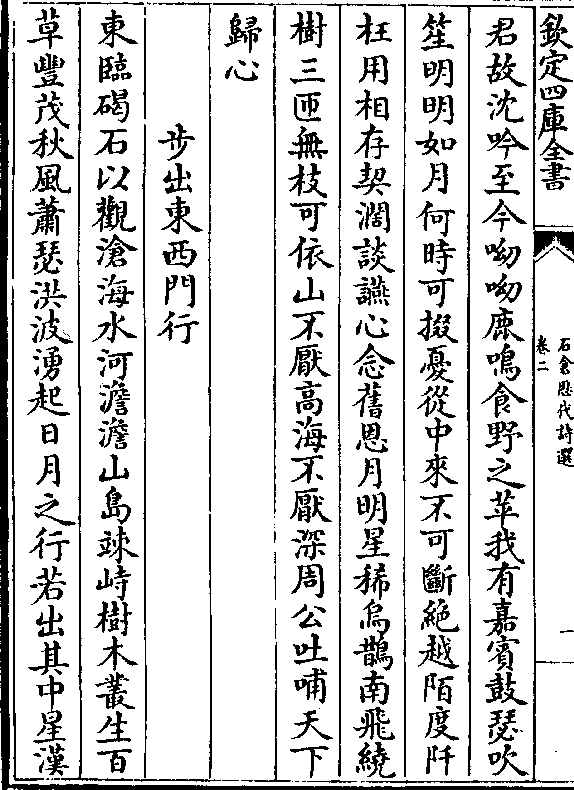 欽定四庫全書
石倉歴代詩選
卷二
一
君故沈吟至今呦呦鹿鳴食野之苹我有嘉賓鼓瑟吹
笙明明如月何時可掇憂從中來不可斷絶越陌度阡
枉用相存契濶談讌心念舊恩月明星稀烏鵲南飛繞
樹三匝無枝可依山不厭高海不厭深周公吐哺天下
歸心
步出東西門行
東臨碣石以觀滄海水河澹澹山島竦峙樹木叢生百
草豐茂秋風蕭瑟洪波湧起日月之行若出其中星漢